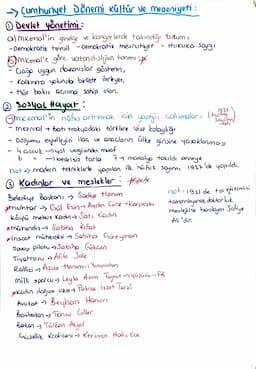 → Cumhuriyet Dönemi kültür ve medeniyeti:
① Devlet yönetimi:
a) M.kemal'in gittiği ve kongrelerde takındığı tutum:
-Demokratik temsil -Demokratik meşruiyet -Hukuka saygı
b) M.kemal'e göre vatandaşlığın tanımı:
- Çağa uygun davranışlar gösteren,
- kalkınma yolunda birlikte ilerleyen,
- Hür bakış açısına sahip olan.
② Sosyal Hayat:
- M.kemal'in nüfus artırmak için yaptığı çalışmalar:
1927
- mübadil → batı trakyadaki türklere vize kolaylığı
- Doğumu engelleyici ilaç ve araçların ülke girişine yasaklanması
- 4 çocuk → yol vergisinde muaf
6 " → bedelsiz tarla 7 → madalya takıldı anneye
not → modern tekniklerle yapılan ilk nüfus sayımı 1927'de yapıldı.
③ kadınlar ve meslekler:
Belediye Başkanı → Sadiye Hanım
* muhtar → Gül Esin → Aydın Çine-Karpuzlu
köyü melez kadın → Satı Kadın
* mühendis → Sabiha Rıfat
* inşaat mühendisi → Sabiha Güreyman
Savaş pilotu → Sabiha Gökçen
Tiyatrocu → Afife Jale
Rallici → Samiye Hanım
milli sporcu → Leyla Asım Turgut → Yüzücü → FB
* kadın doğum uzm → Pakize İzzet Tarzi
Avukat → Beyhan Hanım
Başbakan → Tansu Çiller
Bakan → Türkan Akyol
Güzellik kraliçesi → Keriman Halis Ece
not: 1931 de tıp eğitimini
tamamlayarak doktorluk
mesleğine başlayan Safiye
Ali'dir.